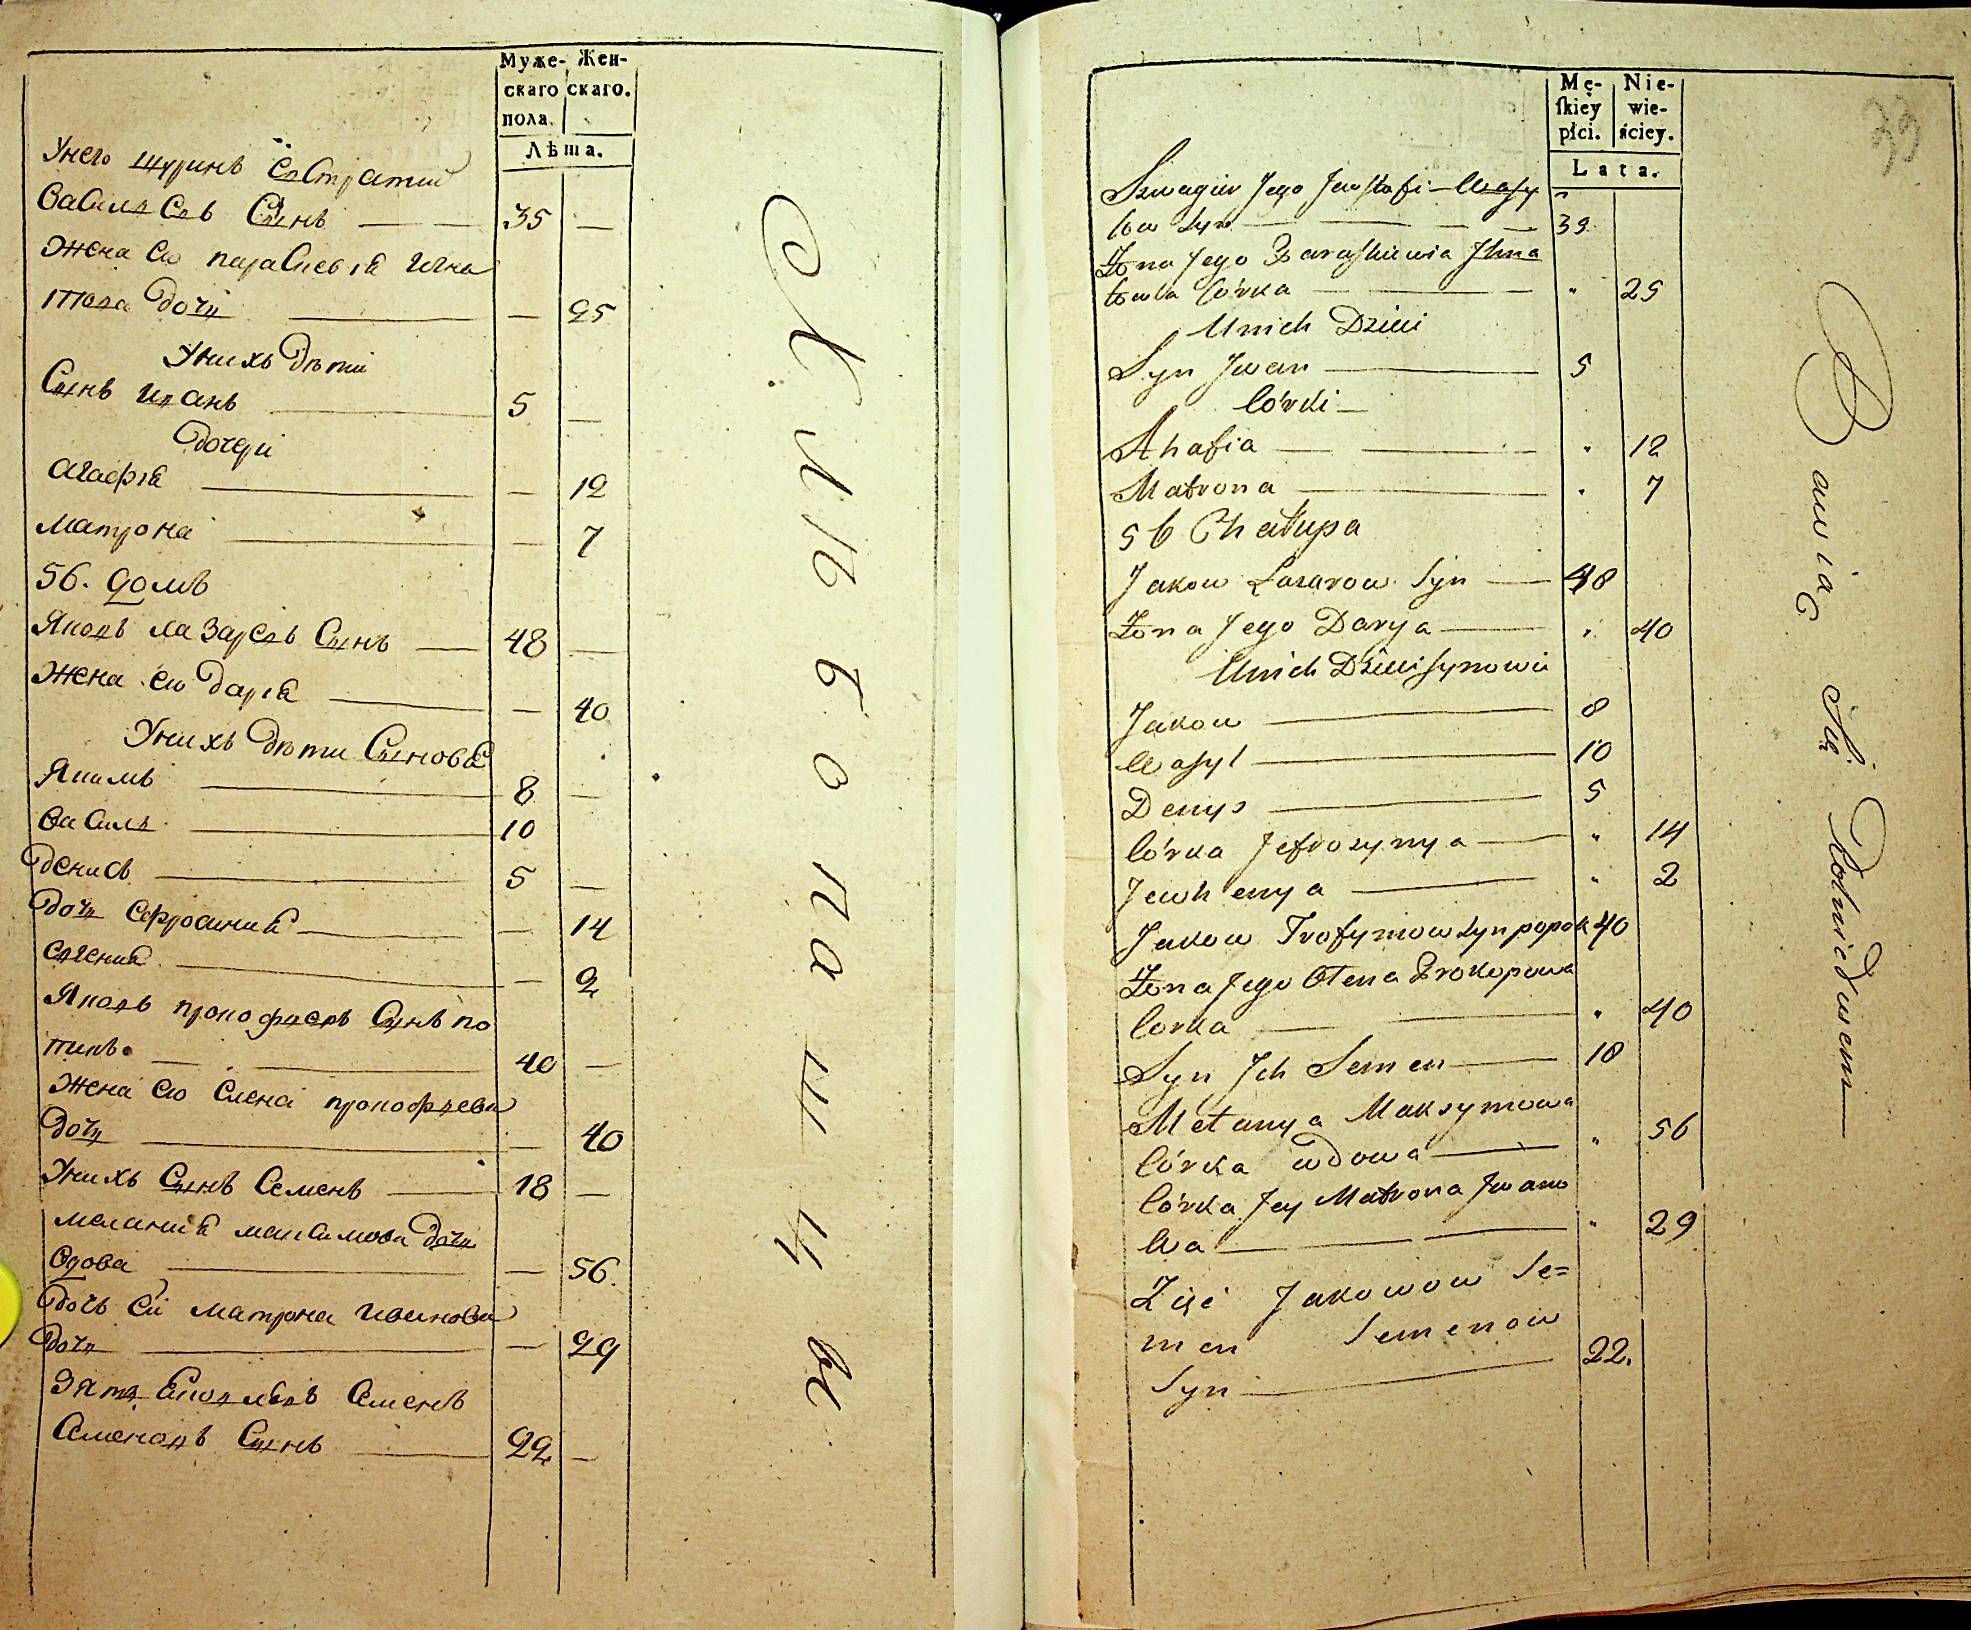 Муже-
скаго
пола.
Жен-
скаго.
Лѣта.
Унего шуринъ Евстратий
Василѣевъ Сынъ 35 —
Жена его парасиевѣя Игна
това дочь — 25
Унихъ дѣти
Сынъ Иванъ 5 —
дочери
Агафия — 12
Матрона — 7
56. домъ
Яковъ лазаревъ Сынъ 48 —
Жена его дария — 40
Унихъ дѣти Сыновя
Якимъ 8 —
Василь 10
денисъ 5 —
дочь ефросиния — 14
евгения — 2
Яковъ прокофьевъ Сынъ по
пикъ 40 —
Жена его елена прокофьева
дочь — 40
Унихъ Сынъ Семенъ 18 —
мелания максимова дочь
вдова — 56.
дочь ей матрона иванова
дочь — 29
Зять Яковлевъ Семенъ
Семеновъ Сынъ 22 —
Хлѣбопашцы
39
Mę-
skiey
płci.
Nie-
wie-
ściey.
Lata.
Szwagier Jego Jewstafi Wasy
low Syn 39
Żona Jego Paraskiewia Ihna
towa Córka " 25
Unich Dzieci
Syn Jwan 5
Córki
Ahafia " 12
Matrona " 7
56 Chałupa
Jakow Lazarow Syn 48
Żona Jego Darya " 40
Unich Dzieci Synowie
Jakow 8
Wasyl 10
Denys 5
Córka Jefrosynya " 14
Jewhenya " 2
Jakow Trofymow Syn popok 40
Żona Jego Ołena Prokopowa
Corka " 40
Syn Jch Semen 18
Mełanya Maksymowa
Córka wdowa " 56
Córka Jey Matrona Jwano
wa " 29
Zięć Jakowow Se=
men Semenow
Syn 22.
Bawią Się Rolnictwem